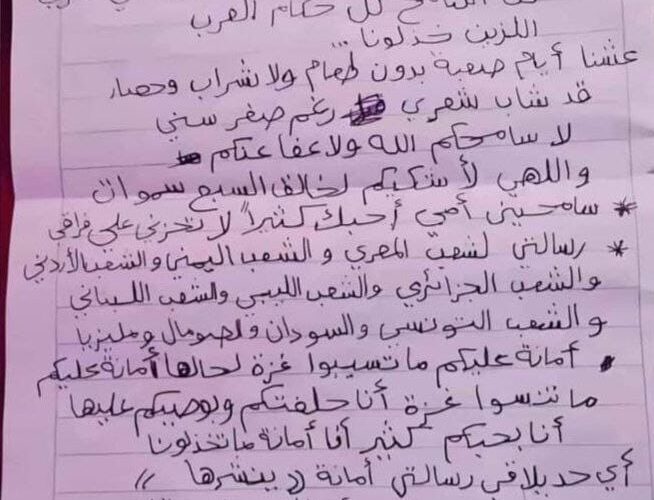 لكل حكام العرب
اللزين خذلونا...
عشنا أيام صعبة بدون طعام ولا شراب وحصار
قد شاب شعري رغم صغر سني
لا سامحكم الله ولا عفا عنكم
واللهي لأشكيكم لخالق السبع سموات
* سامحيني أمي أحبك كثيراً لا تحزني على فراقي
* رسالتي لشعب المصري و الشعب اليمني والشعب الأردني
والشعب الجزائري والشعب الليبي والشعب اللبناني
والشعب التونسي والسودان ولصومال ومليزيا
أمانة عليكم ما تسيبوا غزة لحالها أمانة عليكم
ما تنسوا غزة أنا حلفتكم وبوصيكم عليها
أنا بحبكم كثير أمانة ما تخذلونا
أي حد بلاقي رسالتي أمانة (( ينشرها ))